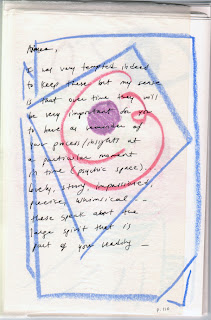 I was very tempted indeed
to keep these but my sense
is that over time they will
be very important for you
to have as reminder of
your process/insights at
a particular moment
in time (psychic space).
lovely, strong impassioned,
precise, whimsical –
these speak about the
large spirit that is
part of your reality –